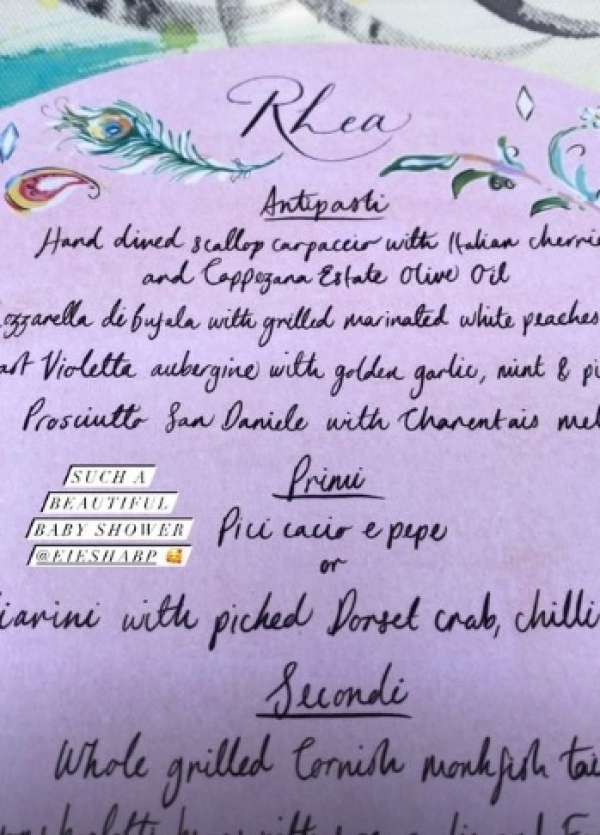 Rhea
Antipasti
Hand dived scallop carpaccio with Italian cherrie
and Cappezana Estate Olive Oil
ozzarella di bufala with grilled marinated white peaches
Violetta aubergine with golden garlic, mint & pi
Prosciutto San Daniele with Charentais mel
Primi
SUCH A
BEAUTIFUL
BABY SHOWER
@EIESHABP 🥰
Pici cacio e pepe
or
iarini with picked Dorset crab, chilli
Secondi
Whole grilled Cornish monkfish tai